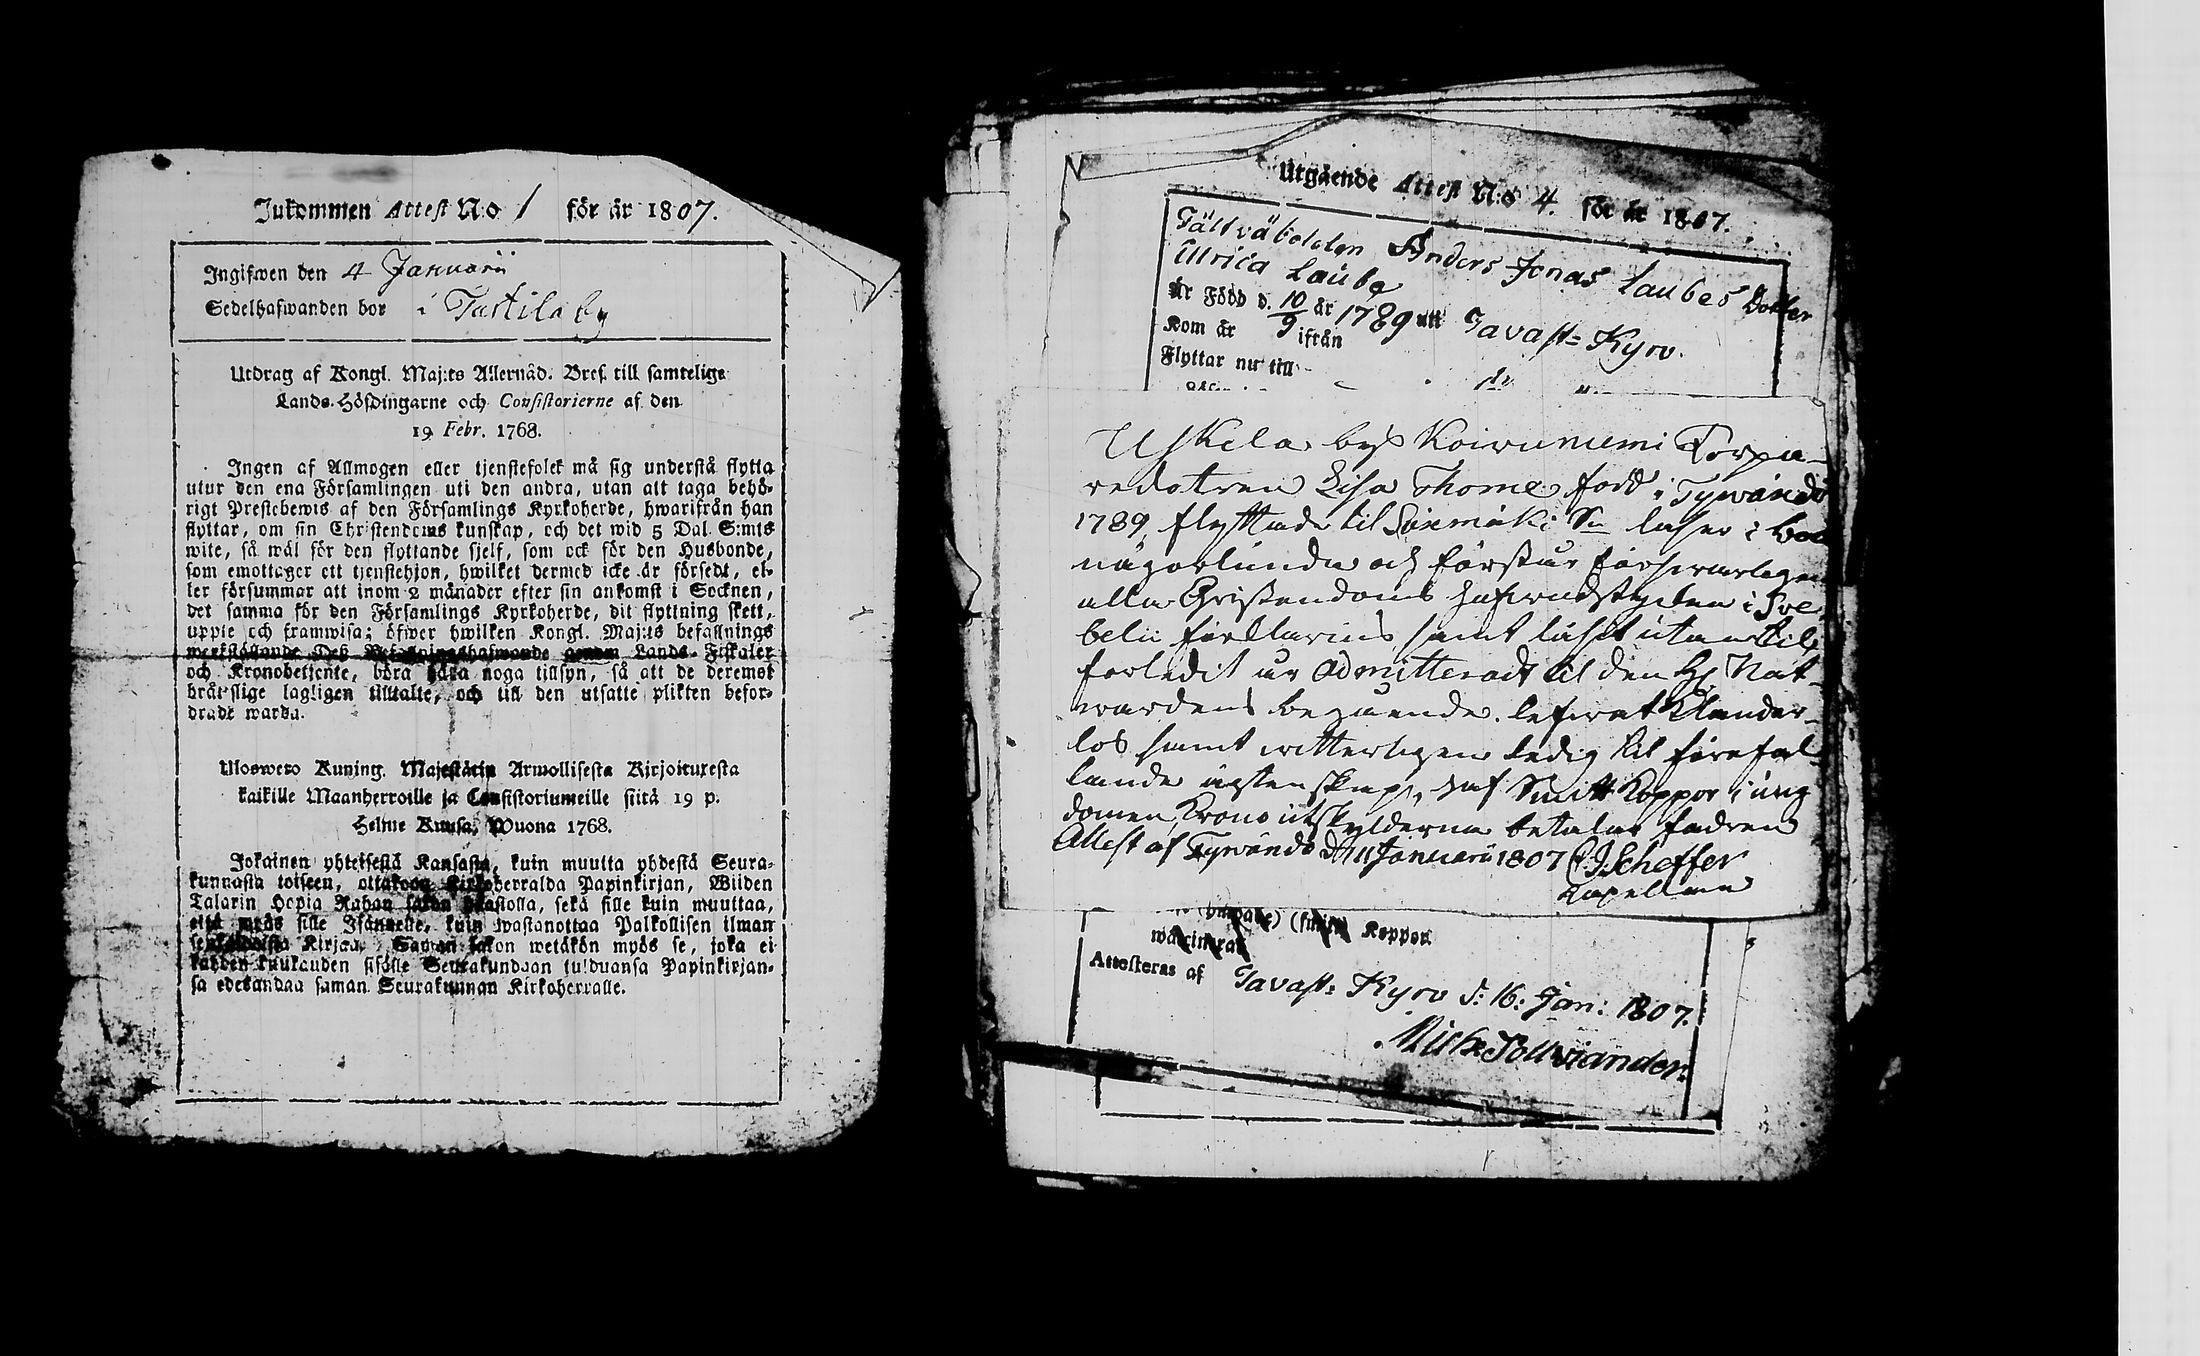 Inkommen Attest N:o 1 för år 1807.
Ingifwen den 4 Januarii
Sedelhafwanden bor i Tastila by
Utdrag af Kongl. Maj:ts Allernåd. Bref till samtelige
Lands-Höfdingarne och Consistorierne af den
19 Febr. 1768.
Ingen af Allmogen eller tjenstefolck må sig understå flytta
utur den ena Församlingen uti den andra, utan att taga behö-
rigt Prestebewis af den Församlings Kyrkoherde, hwarifrån han
flyttar, om sin Christendoms kunskap, och det wid 5 Dal. S:mts
wite, så wäl för den flyttande sjelf, som ock för den Husbonde,
som emottager ett tjenstehjon, hwilket dermed icke är försedt, el-
ler försummar att inom 2 månader efter sin ankomst i Socknen,
det samma för den Församlings Kyrkoherde, dit flyttning skett,
uppte och framwisa; öfwer hwilken Kongl. Maj:ts befallnings
werkställande Deß Befallningshafwande genom Lands-Fiskaler
och Kronobetjente, böra hafa noga tillsyn, så att de deremot
bråtslige lagligen tilltalte, och till den utsatte plikten befor-
drade warda.
Ulosweto Kuning. Majestätin Armollisesta Kirjoituxesta
kaikille Maanherroille ja Consistoriumeille siitä 19 p.
Helme Kuusa, Wuona 1768.
Jokainen yhteisestä Kansasta, kuin muutta yhdestä Seura-
kunnasta toiseen, ottakoon Kirkoherralda Papinkirjan, Wiiden
Talarin Hopia Rahan sakon haastolla, sekä sille kuin muuttaa,
että myös sille Isännelle, kuin wastanottaa Palkollisen ilman
Kirjan. Saman sakon wetäkön myös se, joka ei
kahden kuukauden sisälle Seurakundaan tulduansa Papinkirjan-
sa edeskandaa saman Seurakunnan Kirkoherralle.
Utgående Attest N:o 4. för år 1807.
Fältväbelelen Anders Jonas Laubes Dotter
Ulrica Laube
är Född d. 10/9 år 1789 utti Tavast-Kyro.
Kom år ifrån
Flyttar nu till
Uskela bys Koivuniemi Torpa-
redotren Lisa Thome född i Tywändö
1789, flyttade til Somäki Sn läser i bok
någorlunda och förstår försvarligen
alla Christendoms hufvudstycken i Sve
belii förklaring samt läset utan til,
förledit år admitterad til den H. Nat-
wardens begående. lefwat klander-
los samt witterligen ledig til förefal-
lande ägtenskap, haf Smitt Koppor i ung
domen, Krono utskylderna betalar fadren
Attest af Tywändö d. 11 Januarii 1807 C. J. Scheffer
Kapellan
Koppor.
Attesteras af Tavast-Kyro d: 16: Jan: 1807.
Mich Pollviander.